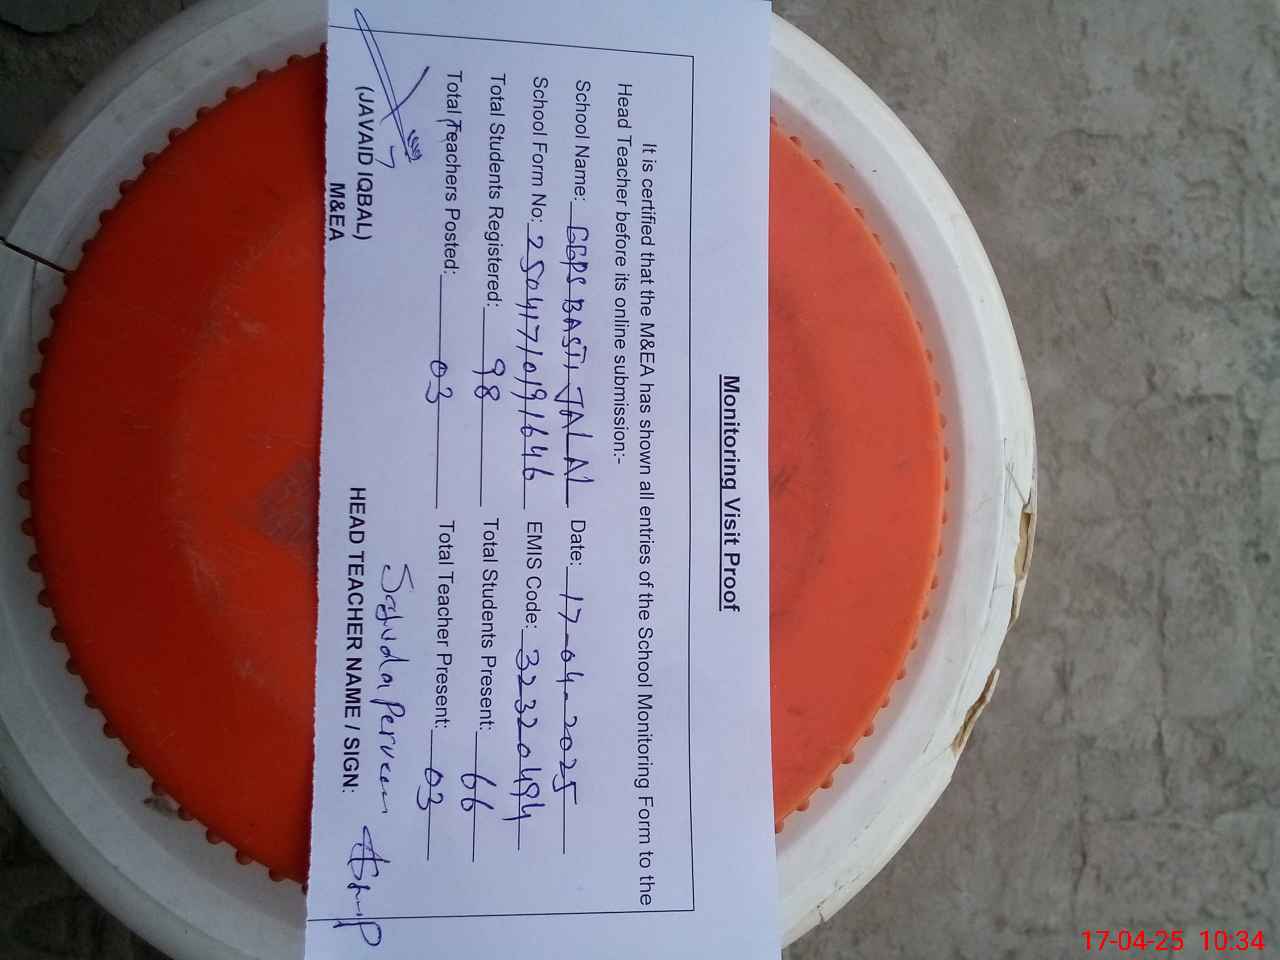 Monitoring Visit Proof
It is certified that the M&EA has shown all entries of the School Monitoring Form to the
Head Teacher before its online submission:-
School Name: GGPS BASTI JALAL Date: 17-04-2025
School Form No: 250417/019/646 EMIS Code: 32320494
Total Students Registered: 98 Total Students Present: 66
Total Teachers Posted: 03 Total Teacher Present: 03
(JAVAID IQBAL)
M&EA
Perveen
HEAD TEACHER NAME / SIGN:
17-04-25 10:34